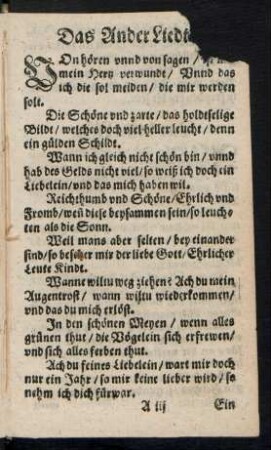 Das Ander Liedt
VOn hören vnnd von sagen / ist
mein Hertz verwundt / Vnnd das
ich die sol meiden / die mir werden
solt.
Die Schöne vnd zarte / das holdselige
Bilde / welches doch viel heller leucht / denn
ein gülden Schildt.
Wann ich gleich nicht schön bin / vnnd
hab des Gelds nicht viel / so weiß ich doch ein
Liebelein / vnd das mich haben wil.
Reichthumb vnd Schöne / Ehrlich vnd
Fromb / weñ diese beysammen sein / so leuch-
ten als die Sonn.
Weil mans aber selten / bey einander
find / so bescher mir der liebe Gott / Ehrlicher
Leute Kindt.
Wanne wiltu weg ziehen? Ach du mein
Augentrost / wann wiltu wiederkommen /
vnd das du mich erlöst.
In den schönen Meyen / wenn alles
grünen thut / die Vögelein sich erfrewen /
vnd sich alles ferben thut.
Ach du feines Liebelein / wart mir doch
nur ein Jahr / so mir keine lieber wird / so
nehm ich dich fürwar.
A iij Ein